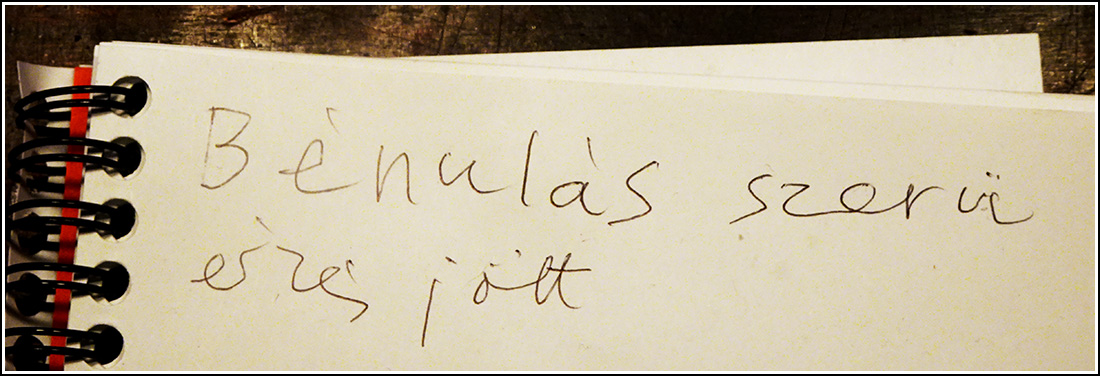 Bénulás szerü
érzés jött